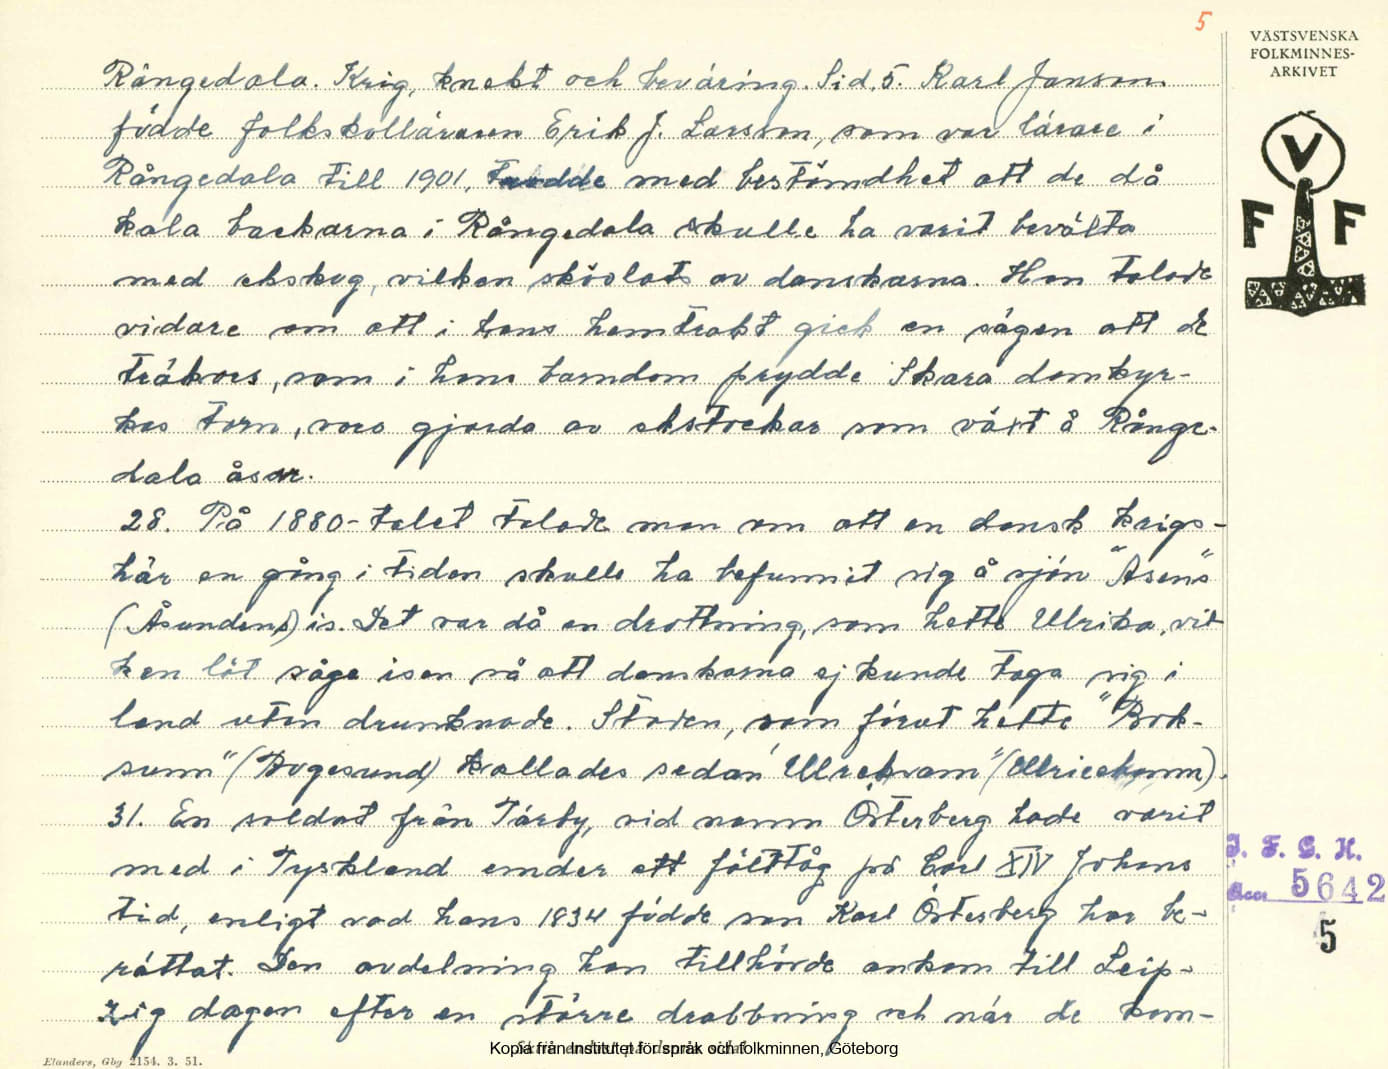 5
VÄSTSVENSKA
FOLKMINNES-
ARKIVET
V
F F
Rångedala. Krig, knekt och beväring. Sid. 5. Karl Janson
födde folkskolläraren Erik J. Larsson, som var lärare i
Rångedala till 1901, trodde med bestämdhet att de då
kala backarna i Rångedala skulle ha varit beväxta
med ekskog, vilken skövlats av danskarna. Han talade
vidare om att i hans hemtrakt gick en sägen att de
träkors, som i hans barndom prydde Skara domkyr-
kas torn, voro gjorda av ekstockar som växt å Rånge-
dala åsar.
28. På 1880-talet talade man om att en dansk krigs-
här en gång i tiden skulle ha befunnit sig å sjön "Åsens"
(Åsundens) is. Det var då en drottning, som hette Ulrika, vil-
ken lät såga isen så att danskarna ej kunde taga sig i
land utan drunknade. Staden, som förut hette "Bok-
sunn" (Bogesund) kallades sedan "Ulrekvam" (Ulricehamn).
31. En soldat från Tärby, vid namn Österberg hade varit
med i Tyskland under ett fälttåg på Carl XIV Johans
tid, enligt vad hans 1834 födde son Karl Österberg har be-
rättat. Den avdelning han tillhörde ankom till Leip-
zig dagen efter en större drabbning och när de kom-
I. F. G. H.
5642
5
Elanders, Gbg 2154. 3. 51.
Kopia från Institutet för språk och folkminnen, Göteborg